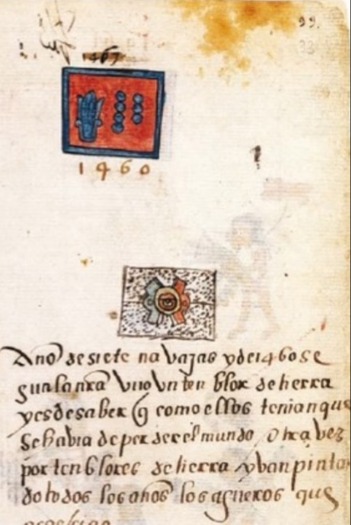 1460
Año de siete navajas y de 1460 se
gun la nra vuo vn ten blor de tierra
y es de saber q̃ como ellos tenian que
se habia de perder el mundo otra vez
por tenblores de tierra yvan pinta
do todos los años los agueros que